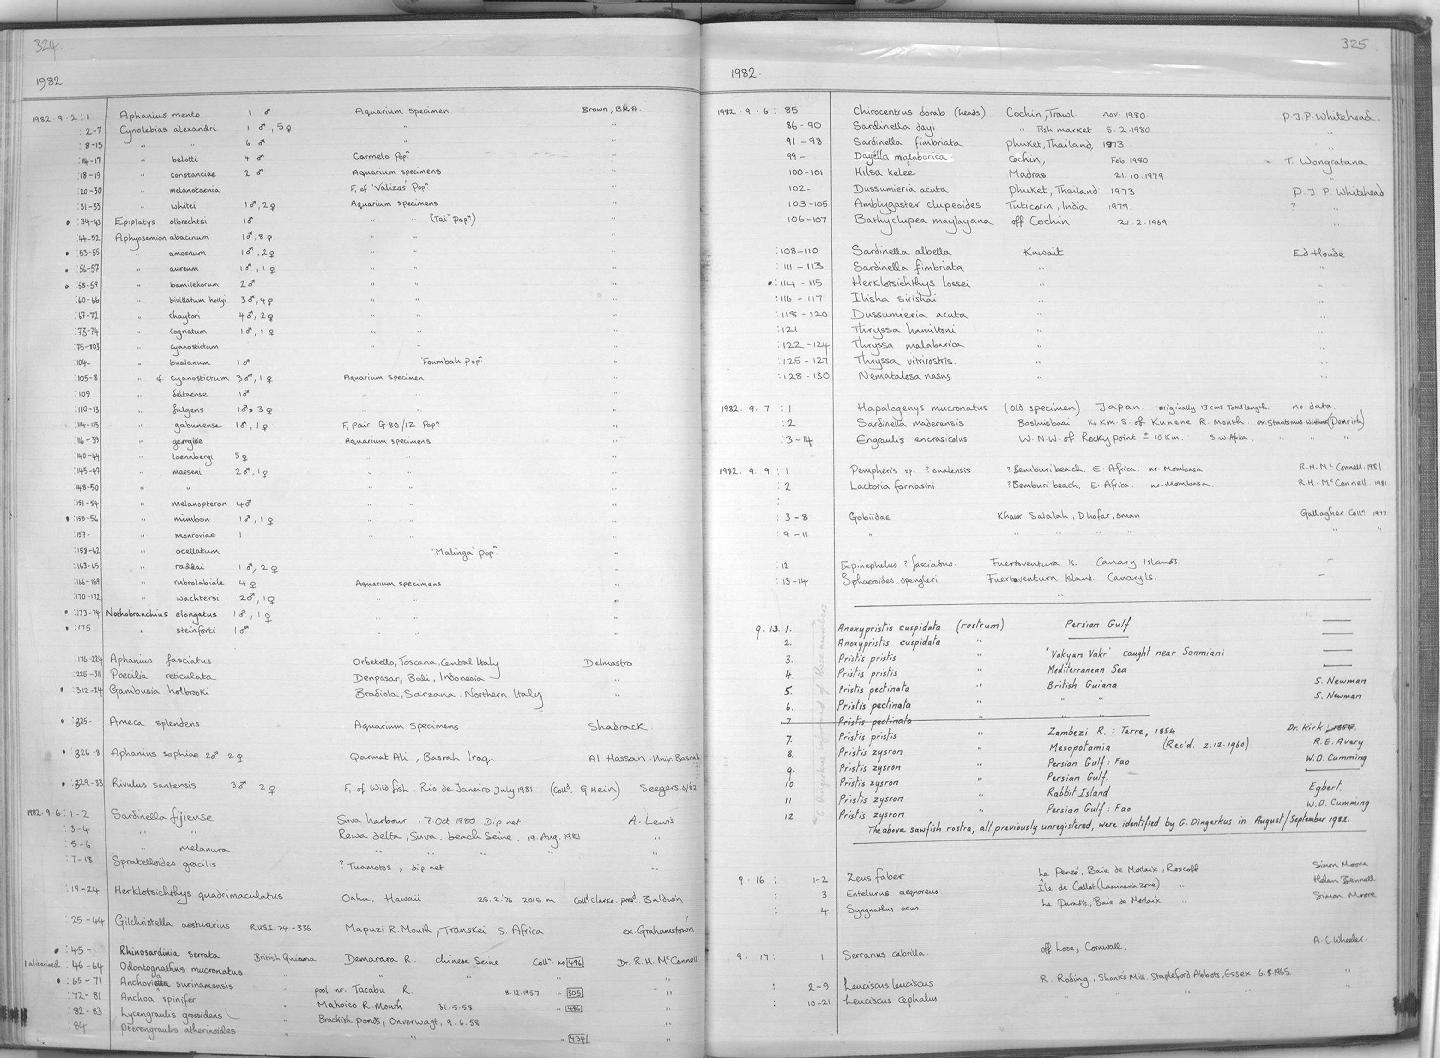 324
1982
1982.9.2:1 Aphanius mento 1 ♂ Aquarium specimen Brown, B.R.A.
:2-7 Cynolebias alexandri 1 ♂, 5♀ " "
:8-13 " " 6 ♂ " "
:14-17 " belotti 4 ♂ Carmelo Popⁿ "
:18-19 " constanciae 2 ♂ Aquarium specimens "
:20-30 " melanotaenia F, of 'Valizas' Popⁿ "
:31-33 " whitei 1♂, 2♀ Aquarium specimens "
:34-43 Epiplatys olbrechtsi 1♂ " " (Tai Popⁿ) "
:44-52 Aphyosemion abacinum 1♂, 8♀ " " "
:53-55 " amoenum 1♂, 2♀ " " "
:56-57 " aureum 1♂, 1♀ " " "
:58-59 " bamilekorum 2♂ " " "
:60-66 " bivittatum hollyi 3♂, 4♀ " " "
:67-72 " chaytori 4♂, 2♀ " " "
:73-74 " cognatum 1♂, 1♀ " " "
:75-103 " cyanostictum " " "
:104- " bualanum 1♂ 'Foumbah Popⁿ' "
:105-8 " cf. cyanostictum 3♂, 1♀ Aquarium specimen "
:109 " deltaense 1♂ " "
:110-13 " fulgens 1♂, 3♀ " " "
:114-115 " gabunense 1♂, 1♀ F, Pair G80/12 Popⁿ "
:116-39 " georgiae Aquarium specimens "
:140-44 " loennbergi 5♀ " " "
:145-47 " maeseni 2♂, 1♀ " " "
:148-50 " " " " "
:151-54 " melanopteron 4♂ " " "
:155-56 " mimbon 1♂, 1♀ " " "
:157- " monroviae 1 " " "
:158-62 " ocellatum 'Malinga' Popⁿ "
:163-65 " raddai 1♂, 2♀ " "
:166-169 " rubrolabiale 4♀ Aquarium specimens "
:170-172 " wachtersi 2♂, 1♀ " " "
:173-74 Nothobranchius elongatus 1♂, 1♀ " " "
:175 " steinforti 1♂ " " "
:176-224 Aphanius fasciatus Orbetello, Toscana, Central Italy Delmastro
:225-311 Poecilia reticulata Denpasar, Bali, Indonesia "
:312-24 Gambusia holbrooki Bradiola, Sarzana. Northern Italy "
:325- Ameca splendens Aquarium specimens Shadrack.
:326-8 Aphanius sophiae 2♂ 2♀ Qarmat Ali, Basrah Iraq. Al Hassan. Univ. Basrah
:329-33 Rivulus santensis 3♂ 2♀ F, of Wild fish. Rio de Janeiro July 1981 (Collᵈ. G Hein) Seegers.6/82
1982.9.6:1-2 Sardinella fijiense Suva harbour. 7.Oct 1980 Dip net A. Lewis
:3-4 " " Rewa delta, Suva. beach Seine, 19.Aug.1981 "
:5-6 " melanura " " " " "
:7-18 Spratelloides gracilis ? Tuamotos, dip net "
:19-24 Herklotsichthys quadrimaculatus Oahu, Hawaii 25.2.76 2015 m Collᵈ Clarke. presᵈ. Baldwin
:25-44 Gilchristella aestuarius RUSI. 74-336 Mapuzi R. Mouth, Transkei S. Africa ex. Grahamstown
:45- Rhinosardinia serrata British Guiana Demarara R. chinese Seine Collⁿ no 496 Dr. R.H. McConnell
1 alizarined :46-64 Odontognathus mucronatus " " " "
:65-71 Anchoviella surinamensis " pool nr. Tacabu R. 8.12.1957 " 305 "
:72-81 Anchoa spinifer " Mahaica R. Mouth 31.5.58 " 486 "
:82-83 Lycengraulis grossidens " Brackish ponds, Onverwagt, 9.6.58 "
84 Pterengraulis atherinoides " " " 434 "
325
1982.
1982.9.6:85 Chirocentrus dorab (heads) Cochin, Trawl. nov. 1980. P.J.P. Whitehead.
86-90 Sardinella dayi " Fish market 5.2.1980 "
91-98 Sardinella fimbriata Phuket, Thailand, 1973 "
99- Dayella malabarica Cochin, Feb 1980 T. Wongratana
100-101 Hilsa kelee Madras 21.10.1979 "
102- Dussumieria acuta Phuket, Thailand 1973 P.J.P. Whitehead
103-105 Amblygaster clupeoides Tuticorin, India 1979. ? "
106-107 Bathyclupea maylayana off Cochin 21.2.1969 "
:108-110 Sardinella albella Kuwait Ed Houde
:111-113 Sardinella fimbriata " "
:114-115 Herklotsichthys lossei " "
:116-117 Ilisha sirishai " "
:118-120 Dussumieria acuta " "
:121 Thryssa hamiltoni " "
:122-124 Thryssa malabarica " "
:125-127 Thryssa vitrirostris. " "
:128-130 Nematalosa nasus " "
1982.9.7:1 Hapalogenys mucronatus (old specimen) Japan. originally 13 cms Total length. no data.
:2 Sardinella maderensis Bosluisbaai 14 KM. S. of Kunene R. Month
:3-14 Engraulis encrasicolus W.N.W. of Rocky point ± 10 Km. S.W. Africa. " " "
1982.9.9:1 Pempheris sp. ? oualensis ? Bemburi beach, E. Africa. nr. Mombasa R.H. McConnell. 1981
:2 Lactoria fornasini ? Bemburi beach, E. Africa. nr. Mombasa. R.H. McConnell. 1981
:3-8 Gobiidae Khawr Salalah, Dhofar, Oman Gallagher Collⁿ 1977
:9-11 " " " " " " "
:12 Epinephelus ? fasciatus Fuertaventura Is. Canary Islands. –
:13-14 Sphaeroides spengleri Fuertaventura Island. Canary Is. –
9.13.1. Anoxypristis cuspidata (rostrum) Persian Gulf —
2. Anoxypristis cuspidata " — —
3. Pristis pristis " 'Vakyan Vakr' caught near Sonmiani —
4. Pristis pristis " Mediterranean Sea —
5. Pristis pectinata " British Guiana S. Newman
6. Pristis pectinata " " " S. Newman
7 Pristis pectinata "
7. Pristis pristis " Zambezi R.: Terre, 1854 Dr. Kirk 1854.
8. Pristis zysron " Mesopotamia (Rec'd. 2.12.1960) R.E. Avery
9. Pristis zysron " Persian Gulf: Fao W.D. Cumming
10 Pristis zysron " Persian Gulf. —
11 Pristis zysron " Rabbit Island Egbert.
12 Pristis zysron " Persian Gulf: Fao W.D. Cumming
The above sawfish rostra, all previously unregistered, were identified by G. Dingerkus in August/September 1982.
9.16: 1-2 Zeus faber Le Penzé, Baie de Morlaix, Roscoff Simon Moore
: 3 Entelurus aequoreus Ile de Callot (Laminaria zone) " Helen Bennell
: 4 Syngnathus acus Le Paradis, Baie de Morlaix " Simon Moore
9.17: 1 Serranus cabrilla. off Looe, Cornwall. A.C. Wheeler.
: 2-9 Leuciscus leuciscus R. Roding, Shonks Mill, Stapleford Abbots, Essex 6.8.1965. "
: 10-21 Leuciscus cephalus " " " " "